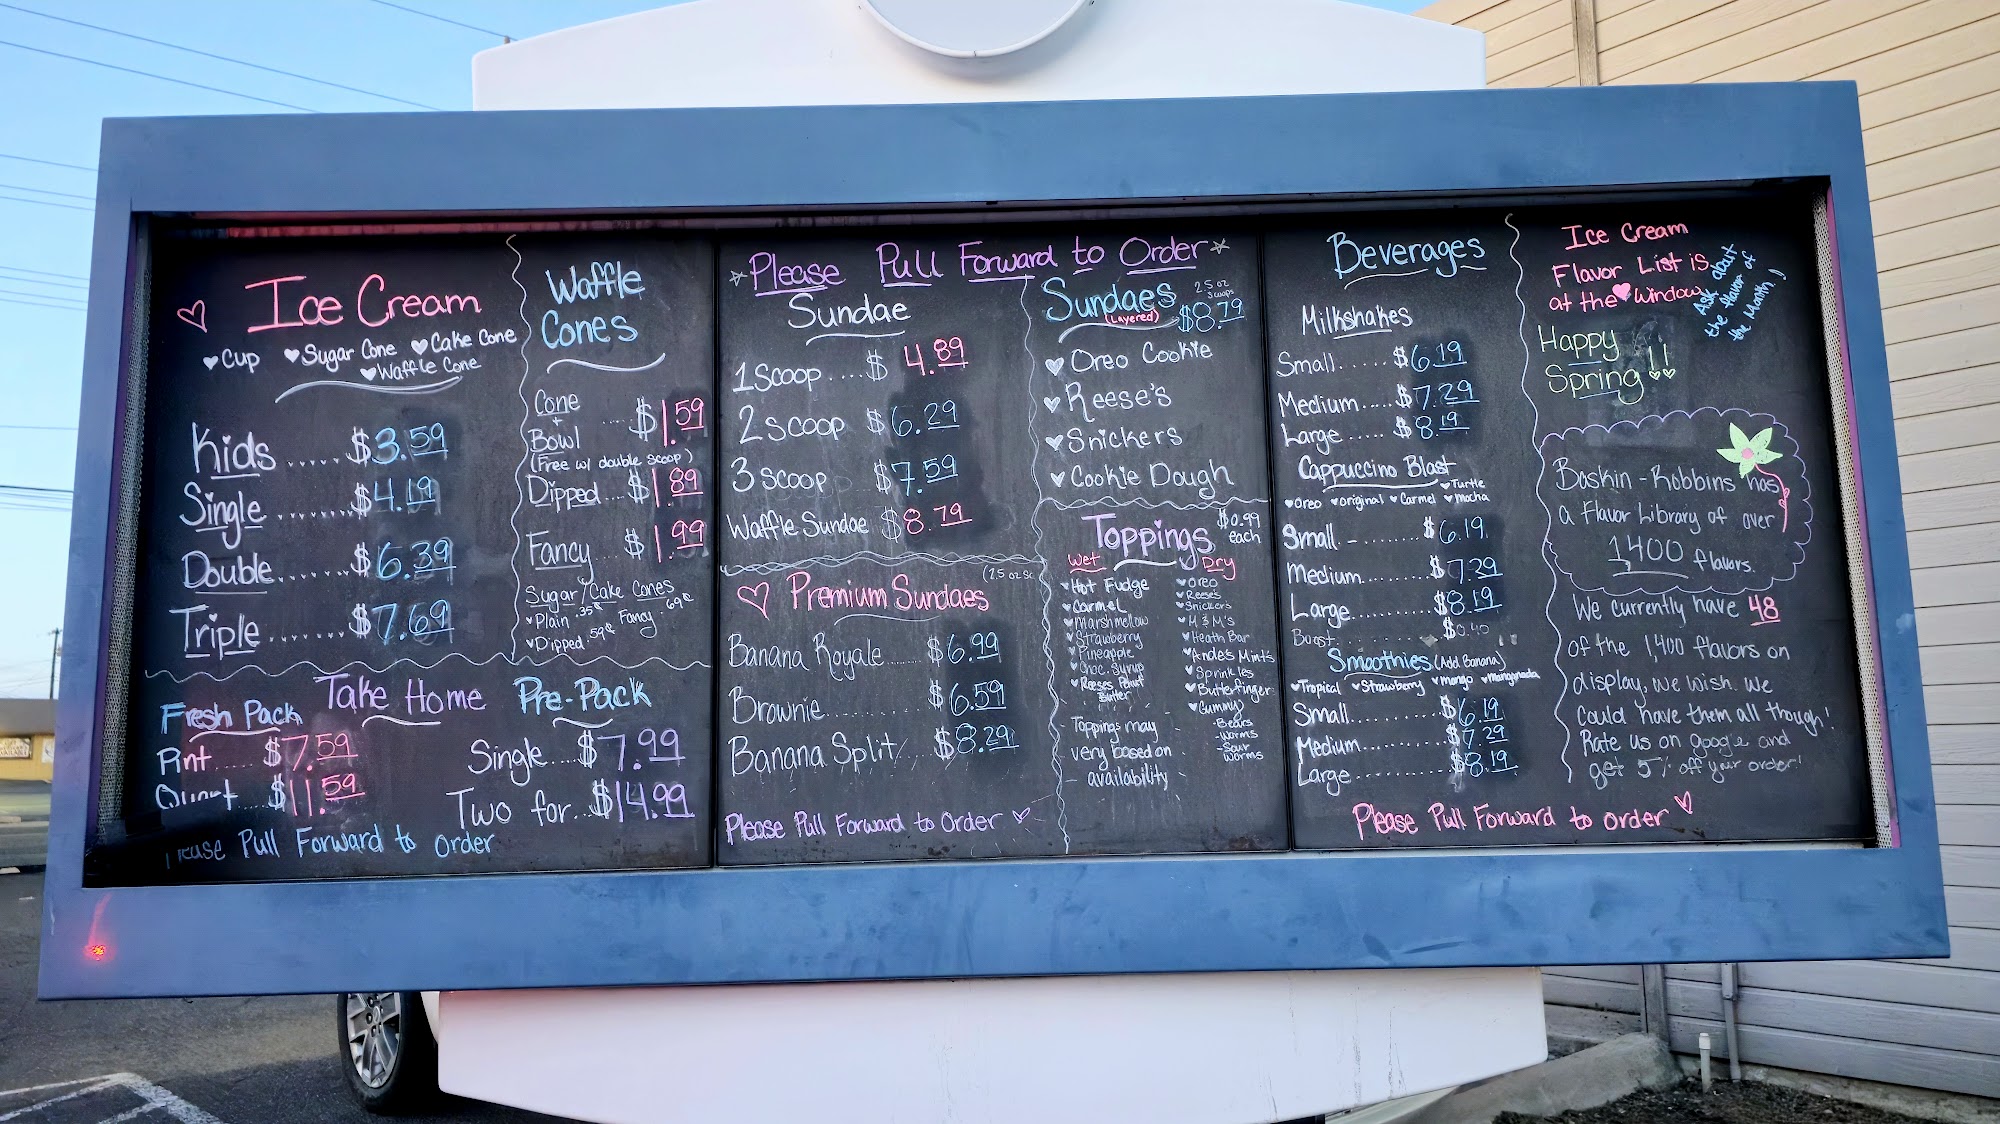 Ice Cream
Cup Sugar Cone Cake Cone
Waffle Cone
Kids ..... $3.59
Single ........ $4.19
Double ....... $6.39
Triple ....... $7.69
Waffle
Cones
Cone
+
Bowl .... $1.59
(Free w/ double scoop)
Dipped ... $1.89
Fancy $1.99
Sugar/Cake Cones
Plain .35¢ Fancy 69¢
Dipped .59¢
Take Home
Fresh Pack
Pint $7.59
Quart ... $11.59
Pre-Pack
Single ... $7.99
Two for... $14.99
Please Pull Forward to Order
Please Pull Forward to Order
Sundae
1 Scoop ..... $4.89
2 scoop $6.29
3 scoop $7.59
Waffle Sundae $8.79
Premium Sundaes
Banana Royale ..... $6.99
Brownie ............ $6.59
Banana Split $8.29
Please Pull Forward to Order
Sundaes 2.5 oz
scoops
(Layered) $8.79
Oreo Cookie
Reese's
Snickers
Cookie Dough
Toppings $0.99
each
Wet
Hot Fudge
Carmel
Marshmellow
Strawberry
Pineapple
Choc. Syrup
Reeses Penut
Butter
Dry
Oreo
Reese's
Snickers
M & M's
Heath Bar
Ande's Mints
Sprinkles
Butterfinger
Gummy
- Bears
- Worms
- Sour
Worms
Toppings may
very based on
- availability -
Beverages
Milkshakes
Small ...... $6.19
Medium ..... $7.29
Large ..... $8.19
Cappuccino Blast
Oreo Original Carmel Mocha Turtle
Small . - $6.19
Medium ........ $7.29
Large .......... $8.19
$0.40
Smoothies (Add Banana)
Tropical Strawberry Mango Mangonada
Small .......... $6.19
Medium .......... $7.29
Large ............ $8.19
Please Pull Forward to Order
Ice Cream
Flavor List is
at the Window
Ask about
the flavor of
the Month!
Happy
Spring!!
Baskin-Robbins has
a Flavor Library of over
1400 flavors.
We currently have 48
of the 1,400 flavors on
display, we wish we
could have them all though!
Rate us on google and
get 5% off your order!